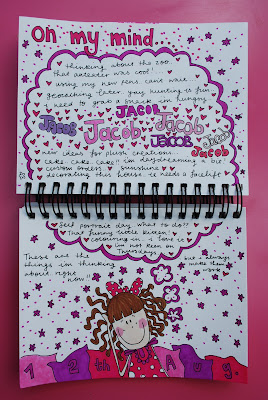 Oh my mind.
♥ thinking about the zoo.
that anteater was cool! ♥
using my new pens can't wait
geocaching later. guy hunting is fun
i need to grab a snack im hungry
JACOB
Jacob Jacob Jacob
JACOB
Jacob
Jacob
new ideas for plush creations
cake. cake. cake!! im daydreaming
custom orders ♥ sunshine ♥
decorating this house. it needs a facelift
self portrait day. what to do??
that funny little kitten!
colouring in. i love it
im not keen on
Thursdays
These are the
things im thinking
about right
now!!
but i always
make them
work
12th Aug.